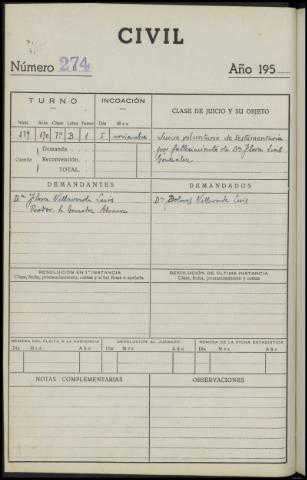 CIVIL
Número 274 Año 195
TURNO INCOACIÓN CLASE DE JUICIO Y SU OBJETO
Núm. Acta Clase Letra Tomo Día Mes
219 170 7ª B 1 5 noviembre
Juicio voluntario de testamentaria
por fallecimiento de Dª Flora Luis
Gonzalez
Cuantía Demanda
Reconvención.
TOTAL.
DEMANDANTES DEMANDADOS
Dª Flora Villaverde Luis Dª Dolores Villaverde Luis
Gonzalez
RESOLUCIÓN EN 1ª INSTANCIA RESOLUCIÓN DE ÚLTIMA INSTANCIA
Clase, fecha, pronunciamiento, costas y si fué firme o apelada. Clase, fecha, pronunciamiento y costas
REMESA DEL PLEITO A LA AUDIENCIA DEVOLUCIÓN AL JUZGADO REMESA DE LA FICHA ESTADÍSTICA
Día Mes Año Día Mes Año Día Mes Año
NOTAS COMPLEMENTARIAS OBSERVACIONES